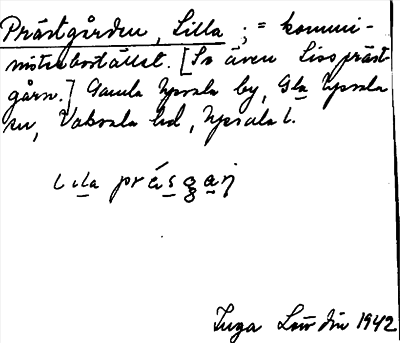 Prästgården, Lilla ; = kommi-
nisterbostället. [Se även Liss präst-
gårn.] Gamla Upsala by, Gla Upsala
sn, Vaksala hd, Upsala l.
lila präsgaṇ
Inga Lowdin 1942